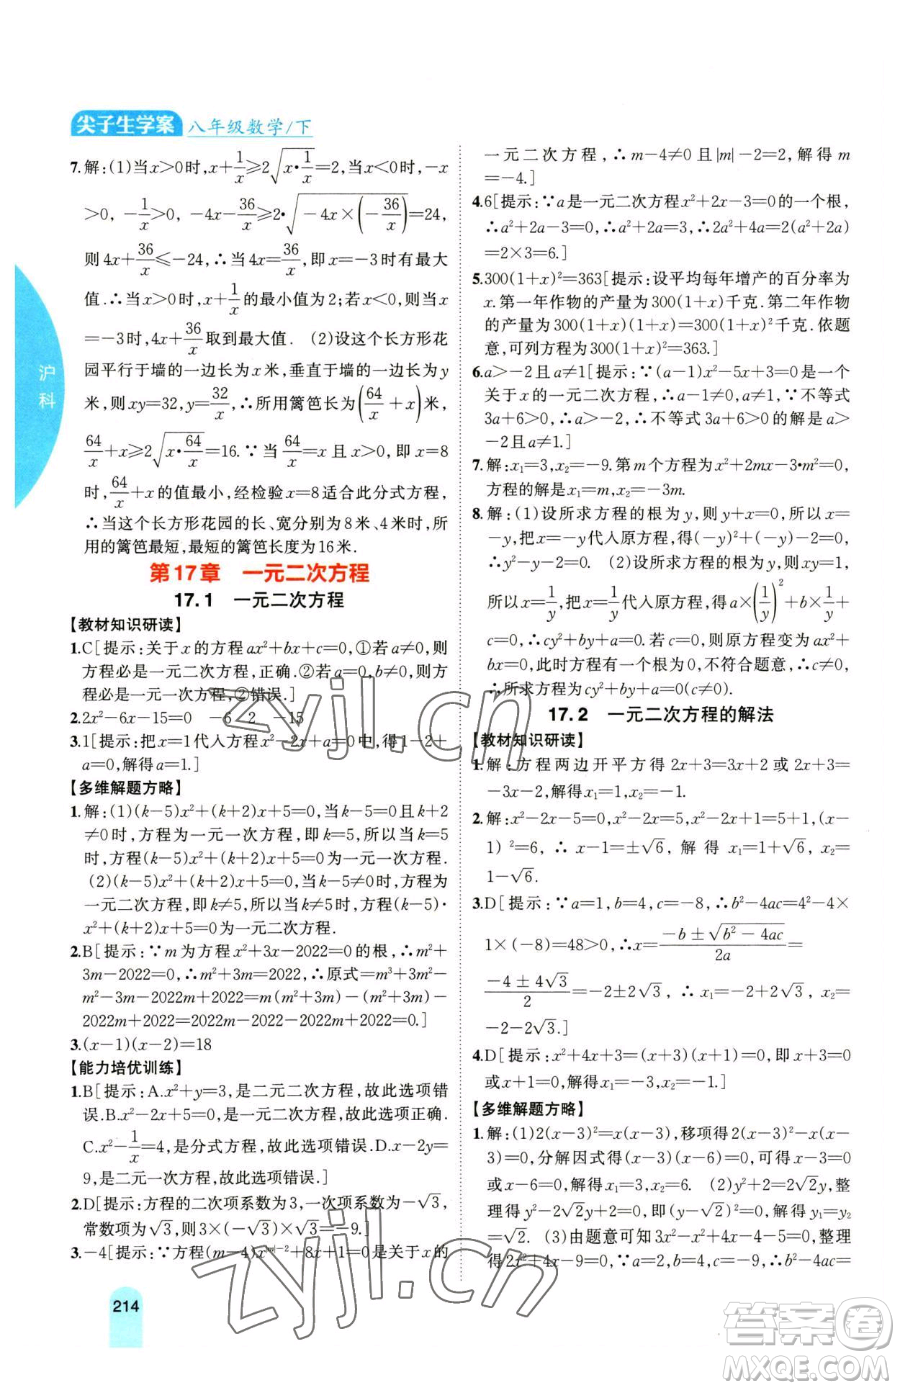 尖子生学案 八年级数学/下
7.解:(1)当x>0时,x+1/x≥2√(x•1/x)=2,当x<0时,-x
>0,-1/x>0,-4x-36/x≥2•√(-4x×(-36/x))=24,
则4x+36/x≤-24,∴当36/x=4x,即x=-3时有最大
值.∴当x>0时,x+1/x的最小值为2;若x<0,则当x
=-3时,4x+36/x取到最大值. (2)设这个长方形花
园平行于墙的一边长为x米,垂直于墙的一边长为y
米,则xy=32,y=32/x,∴所用篱笆长为(64/x+x)米,
64/x+x≥2√(x•64/x)=16.∵当64/x=x,即x=8
时,64/x+x的值最小,经检验x=8适合此分式方程,
∴当这个长方形花园的长、宽分别为8米、4米时,所
用的篱笆最短,最短的篱笆长度为16米.
第17章 一元二次方程
17.1 一元二次方程
【教材知识研读】
1.C[提示:关于x的方程ax²+bx+c=0,①若a≠0,则
方程必是一元二次方程,正确.②若a=0,b≠0,则方
程必是一元一次方程,②错误.]
2.2x²-6x-15=0 -6 2 -15
3.1[提示:把x=1代入方程x²-2x+a=0中,得1-2+
a=0,解得a=1.]
【多维解题方略】
1.解:(1)(k-5)x²+(k+2)x+5=0,当k-5=0且k+2
≠0时,方程为一元一次方程,即k=5,所以当k=5
时,方程(k-5)x²+(k+2)x+5=0为一元一次方程.
(2)(k-5)x²+(k+2)x+5=0,当k-5≠0时,方程为
一元二次方程,即k≠5,所以当k≠5时,方程(k-5)•
x²+(k+2)x+5=0为一元二次方程.
2.B[提示:∵m为方程x²+3x-2022=0的根,∴m²+
3m-2022=0,∴m²+3m=2022,∴原式=m³+3m²-
m²-3m-2022m+2022=m(m²+3m)-(m²+3m)-
2022m+2022=2022m-2022-2022m+2022=0.]
3.(x-1)(x-2)=18
【能力培优训练】
1.B[提示:A.x²+y=3,是二元二次方程,故此选项错
误.B.x²-2x+5=0,是一元二次方程,故此选项正确.
C.x²-1/x=4,是分式方程,故此选项错误.D.x-2y=
9,是二元一次方程,故此选项错误.]
2.D[提示:方程的二次项系数为3,一次项系数为-√3,
常数项为√3,则3×(-√3)×√3=-9.]
3.-4[提示:∵方程(m-4)x^(|m|-2)+8x+1=0是关于x的
一元二次方程,∴m-4≠0且|m|-2=2,解得m
=-4.]
4.6[提示:∵a是一元二次方程x²+2x-3=0的一个根,
∴a²+2a-3=0,∴a²+2a=3,∴2a²+4a=2(a²+2a)
=2×3=6.]
5.300(1+x)²=363[提示:设平均每年增产的百分率为
x.第一年作物的产量为300(1+x)千克.第二年作物
的产量为300(1+x)(1+x)=300(1+x)²千克.依题
意,可列方程为300(1+x)²=363.]
6.a>-2且a≠1[提示:∵(a-1)x²-5x+3=0是一个
关于x的一元二次方程,∴a-1≠0,∴a≠1.∵不等式
3a+6>0,∴a>-2,∴不等式3a+6>0的解是a>
-2且a≠1.]
7.解:x₁=3,x₂=-9.第m个方程为x²+2mx-3•m²=0,
方程的解是x₁=m,x₂=-3m.
8.解:(1)设所求方程的根为y,则y+x=0,所以x=
-y,把x=-y代入原方程,得(-y)²+(-y)-2=0,
即y²-y-2=0. (2)设所求方程的根为y,则xy=1,
所以x=1/y,把x=1/y代入原方程,得a×(1/y)²+b×1/y+
c=0,∴cy²+by+a=0.若c=0,则原方程变为
ax²+bx=0,解中有一根为0,不符合题意,∴c≠0,
∴所求方程为cy²+by+a=0(c≠0).
17.2 一元二次方程的解法
【教材知识研读】
1.解:方程两边开平方得2x+3=3x+2或2x+3=
-3x-2.解得x₁=1,x₂=-1.
2.解:x²-2x-5=0,x²-2x=5,x²-2x+1=5+1,(x-
1)²=6,∴x-1=±√6,解得x₁=1+√6,x₂=
1-√6.
3.D[提示:∵a=1,b=4,c=-8,∴b²-4ac=4²-4×
1×(-8)=48>0,∴x=(-b±√(b²-4ac))/2a=
(-4±4√3)/2=-2±2√3,∴x₁=-2+2√3,x₂=
-2-2√3.]
4.D[提示:x²+4x+3=(x+3)(x+1)=0,x+3=0或
x+1=0,解得x₁=-3,x₂=-1.]
【多维解题方略】
1.解:(1)2(x-3)²=x(x-3),移项得2(x-3)²-x(x-3)
=0,分解因式得(x-3)(2x-6-x)=0,所以x-3=0
或x-6=0,解得x₁=3,x₂=6. (2)y²+2=2√2y,整理
得y²-2√2y+2=0,即(y-√2)²=0,解得y₁=y₂
=√2. (3)由题意可知x²-4x-9=5x²-3x²,整理
得2x²+4x-9=0,∵Δ=4²-4×2×(-9)=88,
沪科
214
zyjl.cn
zyjl.cn
答案圈
MXQE.COM